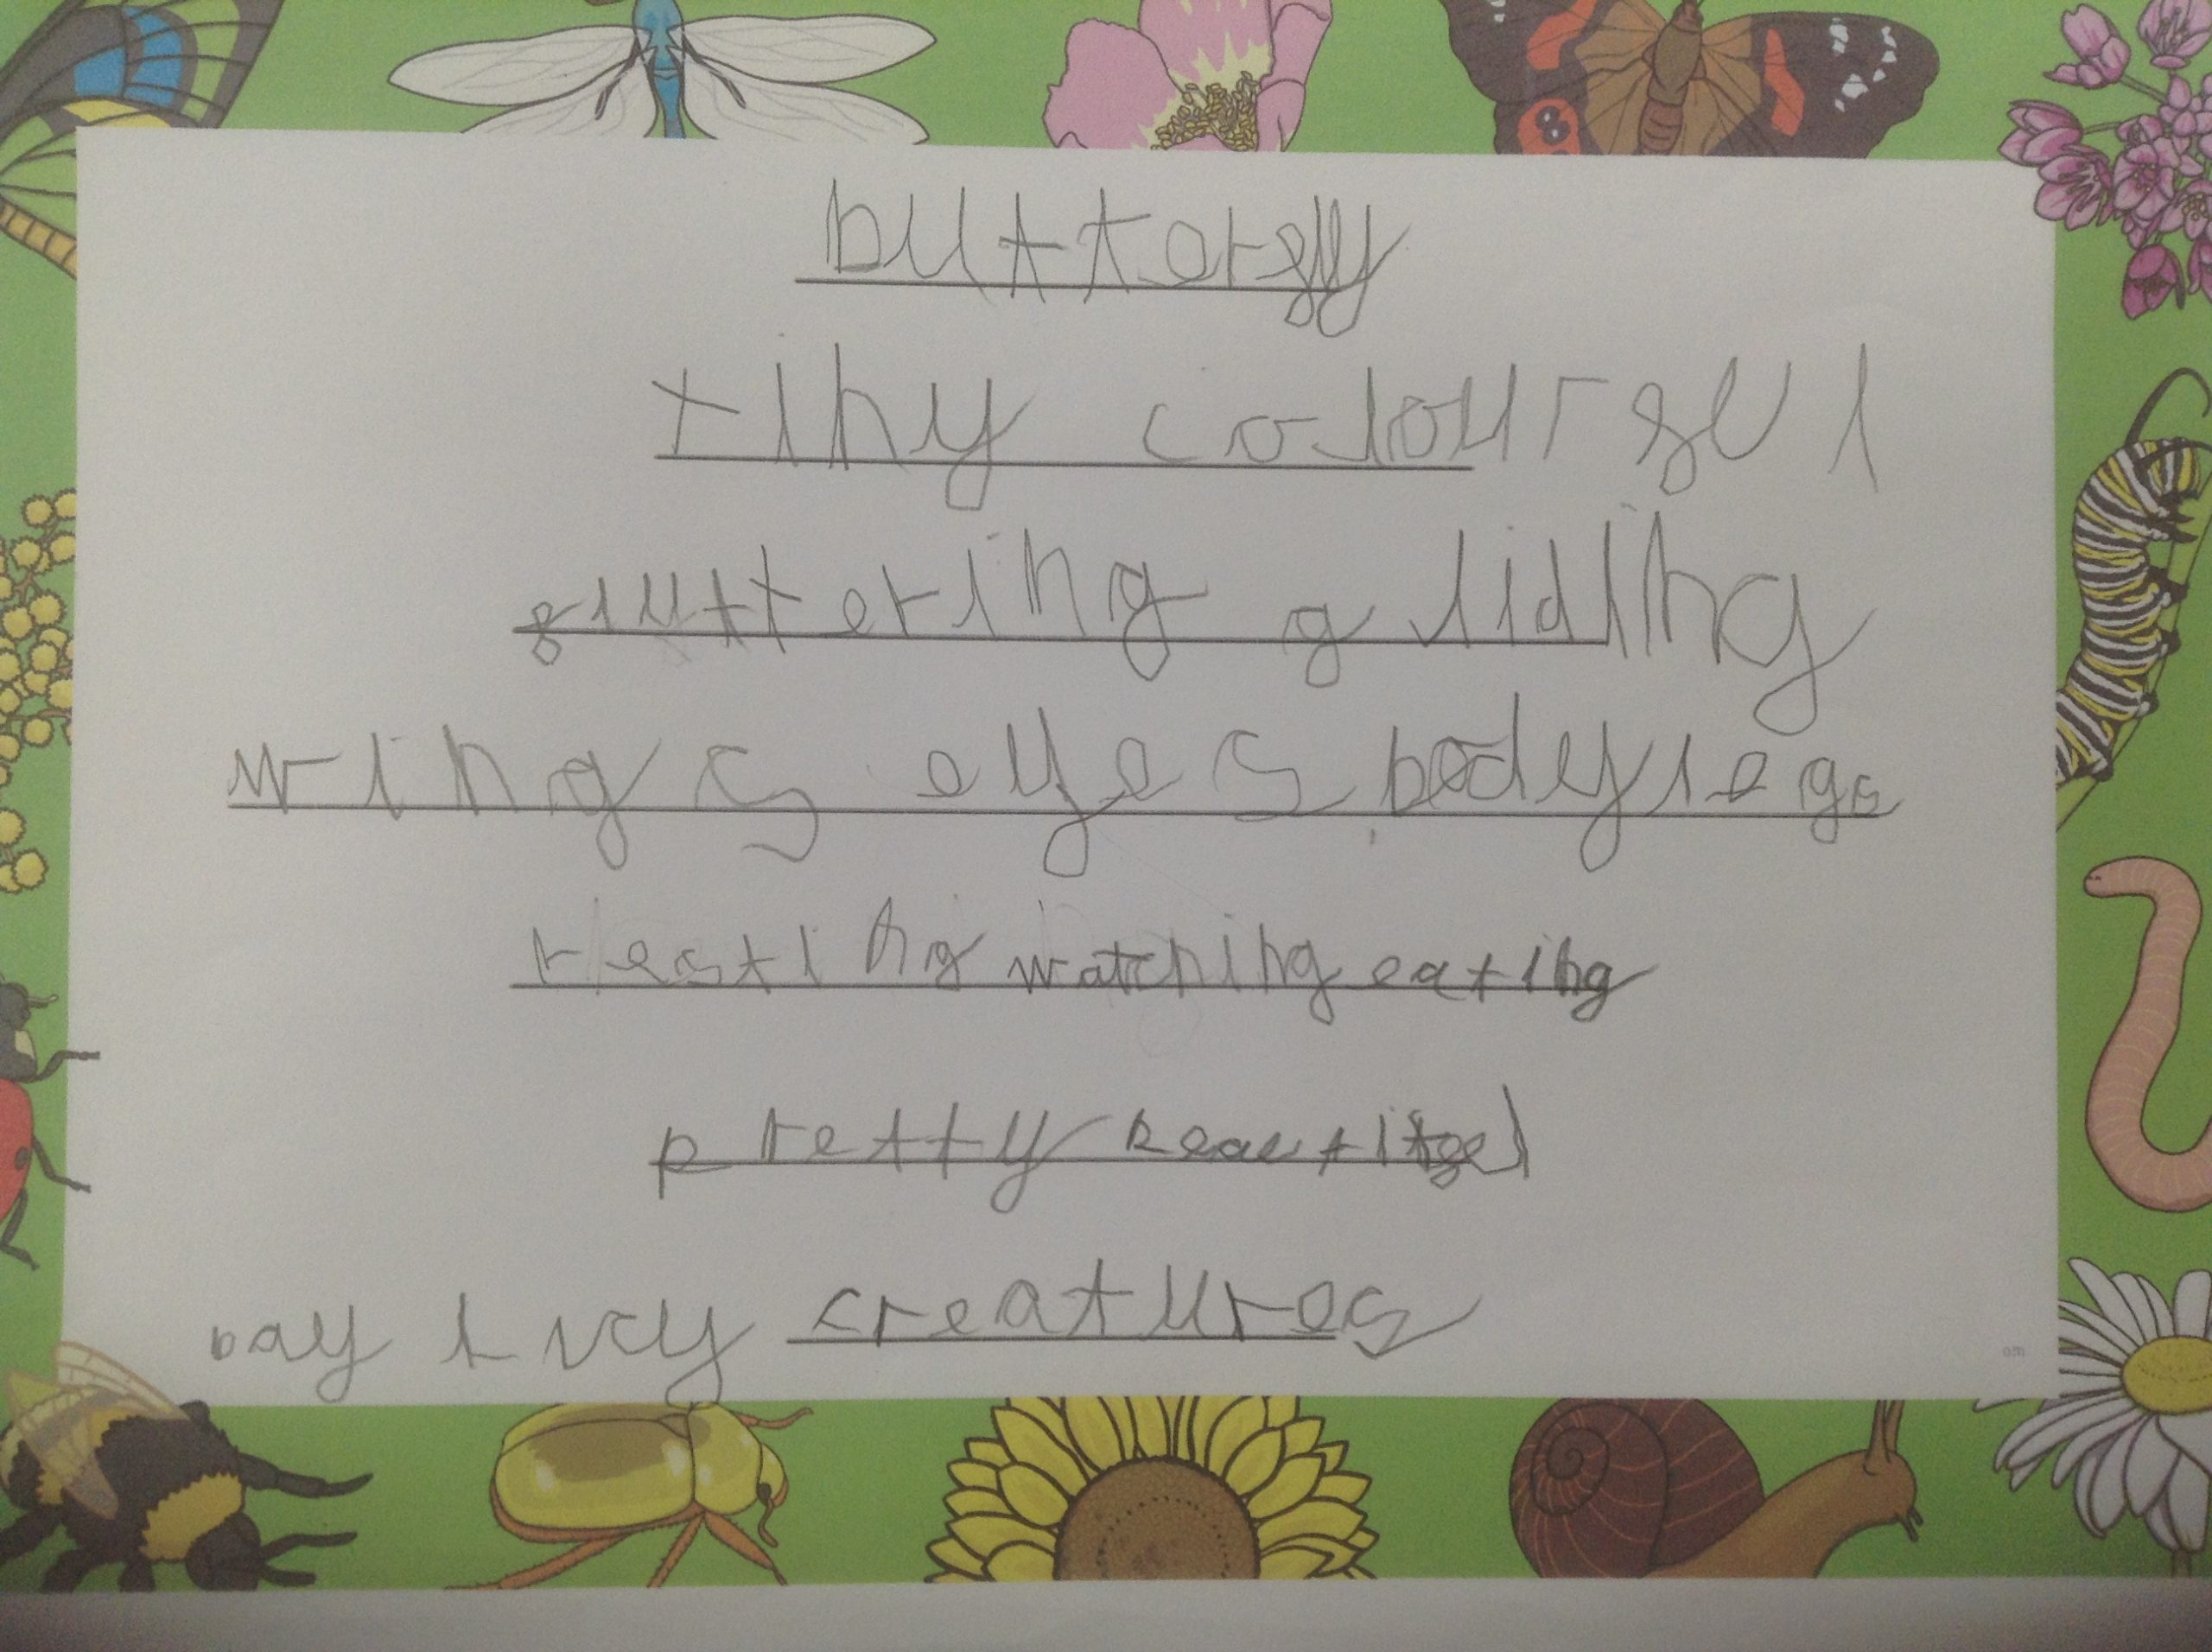 butterfly
tiny colourful
fluttering gliding
wings eyes body legs
resting watching eating
pretty beautiful
by Lucy creatures